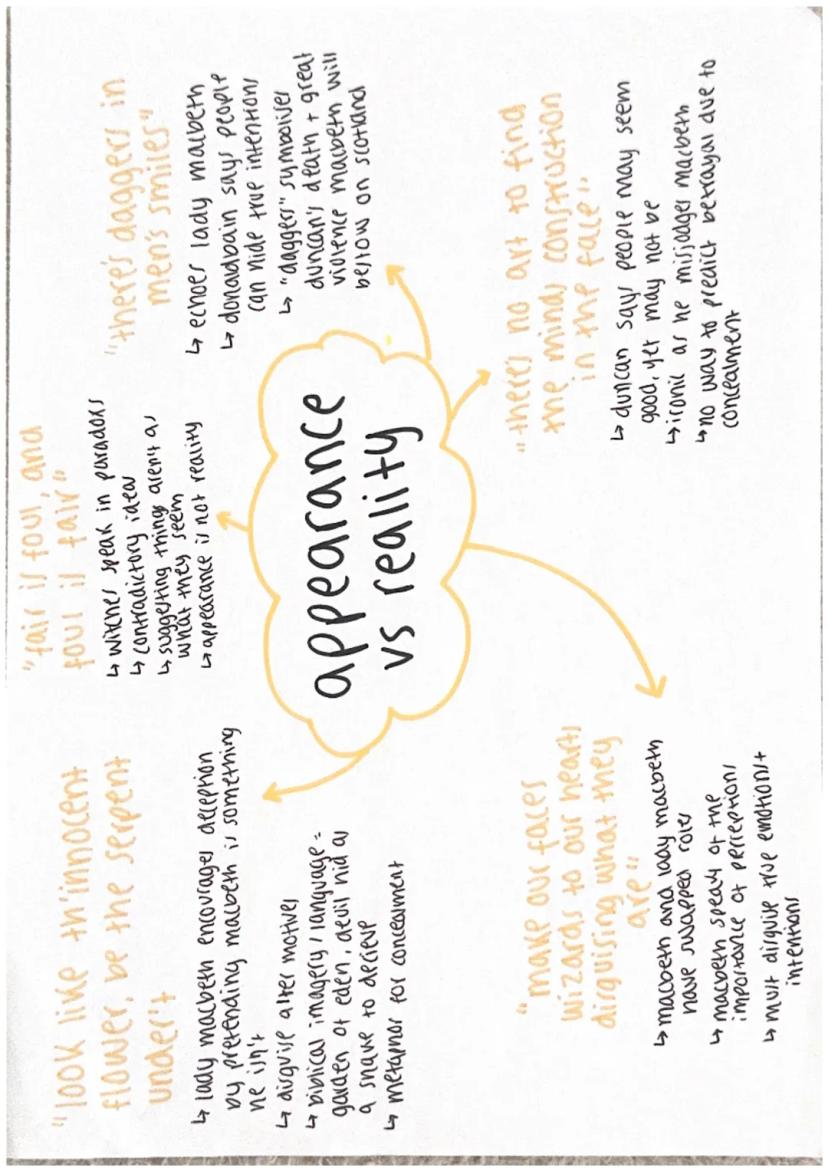 "look like th'innocent
flower, be the serpent
under't
↳ lady macbeth encourages deception
by pretending macbeth is something
he isn't
↳ disguise alter motives
↳ biblical imagery/language =
garden of eden, devil hid as
a snake to decieve
↳ metaphor for concealment
"fair is foul, and
foul is fair"
↳ witches speak in paradoxs
↳ contradictory ideas
↳ suggesting things arent as
what they seem
↳ appearance is not reality
"there's daggers in
men's smiles"
↳ echoes lady macbeth
↳ donaldbain says people
can hide true intentions
↳ "daggers" symbolises
duncan's death + great
violence macbeth will
bestow on scotland
appearance
vs reality
"make our faces
wizards to our hearts
disguising what they
are"
↳ macbeth and lady macbeth
have swapped roles
↳ macbeth speaks of the
importance of perception/
↳ must disguise true emotions+
intentions
"theres no art to find
the minds construction
in the face"
↳ duncan says people may seem
good, yet may not be
↳ ironic as he misjudges macbeth
↳ no way to predict betrayal due to
concealment